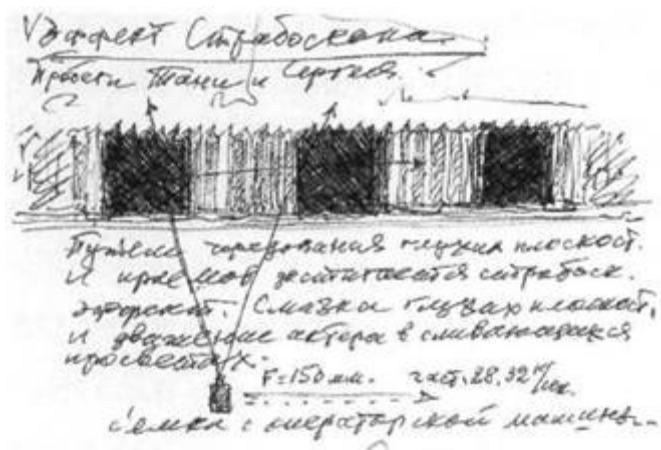 Эффект Страбоскопа.
Проезд Тани и Сергея.
Путем чередования глухих плоскост.
и проемов достигается страбоск.
эффект. Смазка глухих плоскост.
и движение актера в сливающихся
просветах.
F=150мм. част. 28,32 к/сек.
съемка с операторской машины.